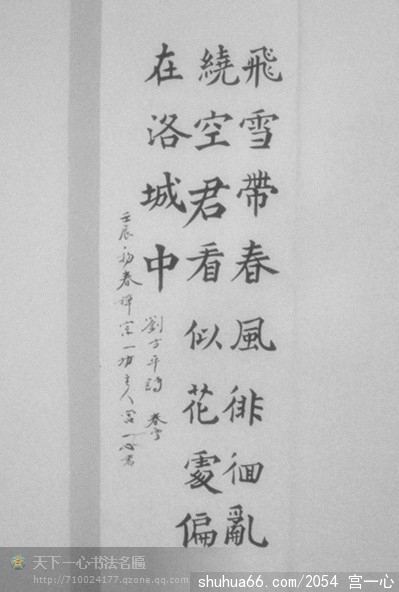 飛雪帶春風徘徊亂
繞空君看似花處偏
在洛城中
劉方平詩 春雪
壬辰初春禅宗一功主人宫一心書
天下一心书法名匾
http://710024177.qzone.qq.com
shuhua66.com/2054 宫一心